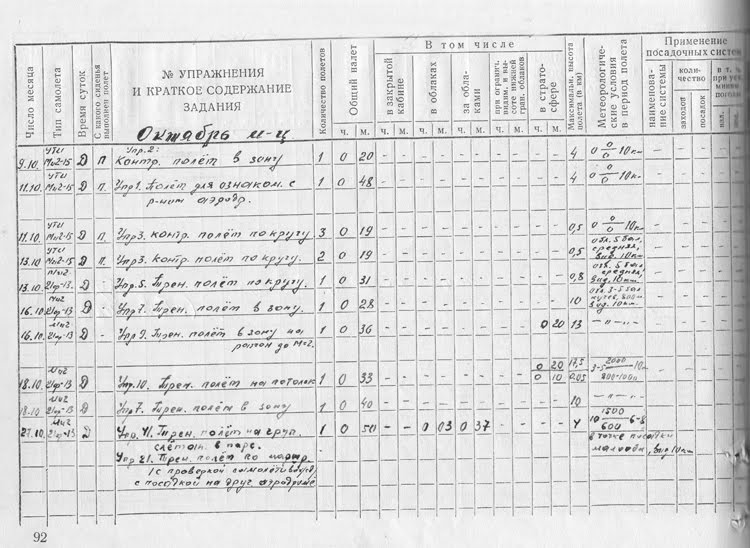 Число месяца
Тип самолета
Время суток
С какого сиденья выполнен полет
№ УПРАЖНЕНИЯ
И КРАТКОЕ СОДЕРЖАНИЕ
ЗАДАНИЯ
Октябрь м-ц
Количество полетов
Общий налет
В том числе
в закрытой кабине
в облаках
за облаками
при огранич. видим. и высоте нижней гран. облаков
в стратосфере
Максимальн. высота полета (в км)
Метеорологические условия в период полета
Применение
посадочных систем
наименование системы
количество
заходов
посадок
в т. ч.
ч. м. ч. м. ч. м. ч. м. ч. м. ч. м.
УТИ Упр. 2:
9.10. Миг-15 Д П Контр. полёт в зону 1 0 20 - - - - - - - - - - 4 0 0/0 10км - - - - -
УТИ
11.10. Миг-15 Д П. Упр1. Полёт для ознаком. с 1 0 48 - - - - - - - - - - 4 0 0/0 10км - - - - -
р-ном аэродр.
УТИ
11.10. Миг-15 Д П. Упр3. контр. полёт по кругу 3 0 19 - - - - - - - - - - 0,5 0 0/0 10км - - - - -
УТИ
13.10. Миг-15 Д П. Упр3. контр. полёт по кругу. 2 0 19 - - - - - - - - - - 0,5 обл. 5 бал, средняя, вид. 10км - - - - -
13.10. 21ф-13 Д - Упр.5. Трен. полёт по кругу. 1 0 31 - - - - - - - - - - 0,8 обл. 5 бал средняя, вид. 10км - - - - -
Миг
16.10. 21ф-13 Д - Упр7. Трен. полёт в зону. 1 0 28 - - - - - - - - - - 10 - - - - -
Миг
16.10. 21ф-13 Д - Упр9. Трен. полёт в зону на 1 0 36 - - - - - - - - 0 20 13 —"— - - - - -
разгон до М=2.
0 20 17,5 3-5 2000 10км
18.10. 21ф-13 Д Упр.10. Трен. полёт на потолок 1 0 33 - - - - - - - - 0 10 0,05 800-1000 - - - - -
Миг
18.10. 21ф-13 Д Упр7. Трен. полёт в зону 1 0 40 - - - - - - - - - - 10 —"— - - - - -
Миг
27.10. 21ф-13 Д Упр. 41. Трен. полёт на груп. 1 0 50 - - 0 03 0 37 - - - - 4 10 1500/600 6-8 - - - - -
слётан. в паре. в точке посадки
Упр. 21. Трен. полёт по маршр. вид 10км
с посадкой на друг. аэродроме
92